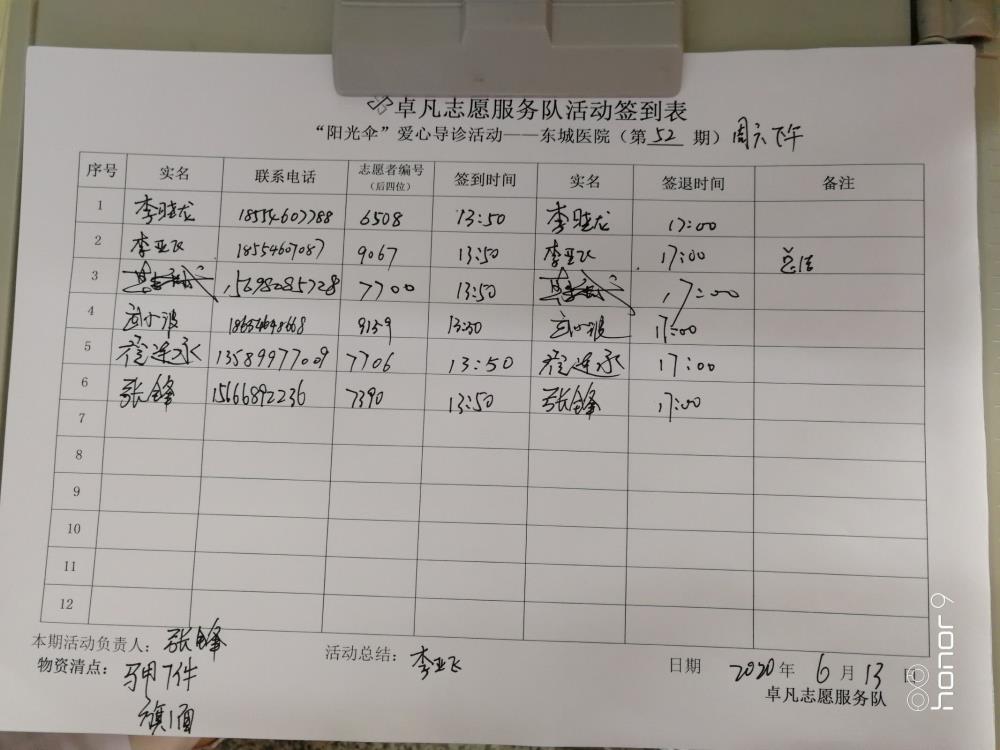 卓凡志愿服务队活动签到表
“阳光伞”爱心导诊活动——东城医院（第 52 期）周六下午
序号 实名 联系电话 志愿者编号（后四位） 签到时间 实名 签退时间 备注
1 李晓龙 18554607788 6508 13:50 李晓龙 17:00
2 李亚飞 18554607087 9067 13:50 李亚飞 17:00 总结
3 15698285728 7700 13:50 17:00
4 武小波 18654648668 9159 13:50 武小波 17:00
5 徐连承 13589977009 7706 13:50 徐连承 17:00
6 张锋 15666892236 7390 13:50 张锋 17:00
7
8
9
10
11
12
本期活动负责人：张锋 活动总结：李亚飞 日期 2020 年 6 月 13 日
物资清点：马甲7件
旗1面
卓凡志愿服务队
honor 9